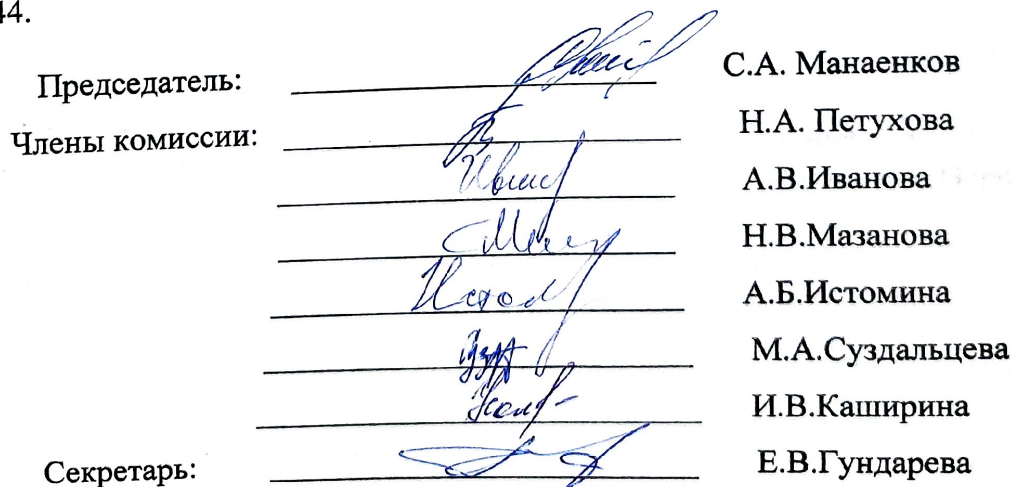 44.
Председатель: С.А. Манаенков
Члены комиссии: Н.А. Петухова
А.В.Иванова
Н.В.Мазанова
А.Б.Истомина
М.А.Суздальцева
И.В.Каширина
Секретарь: Е.В.Гундарева